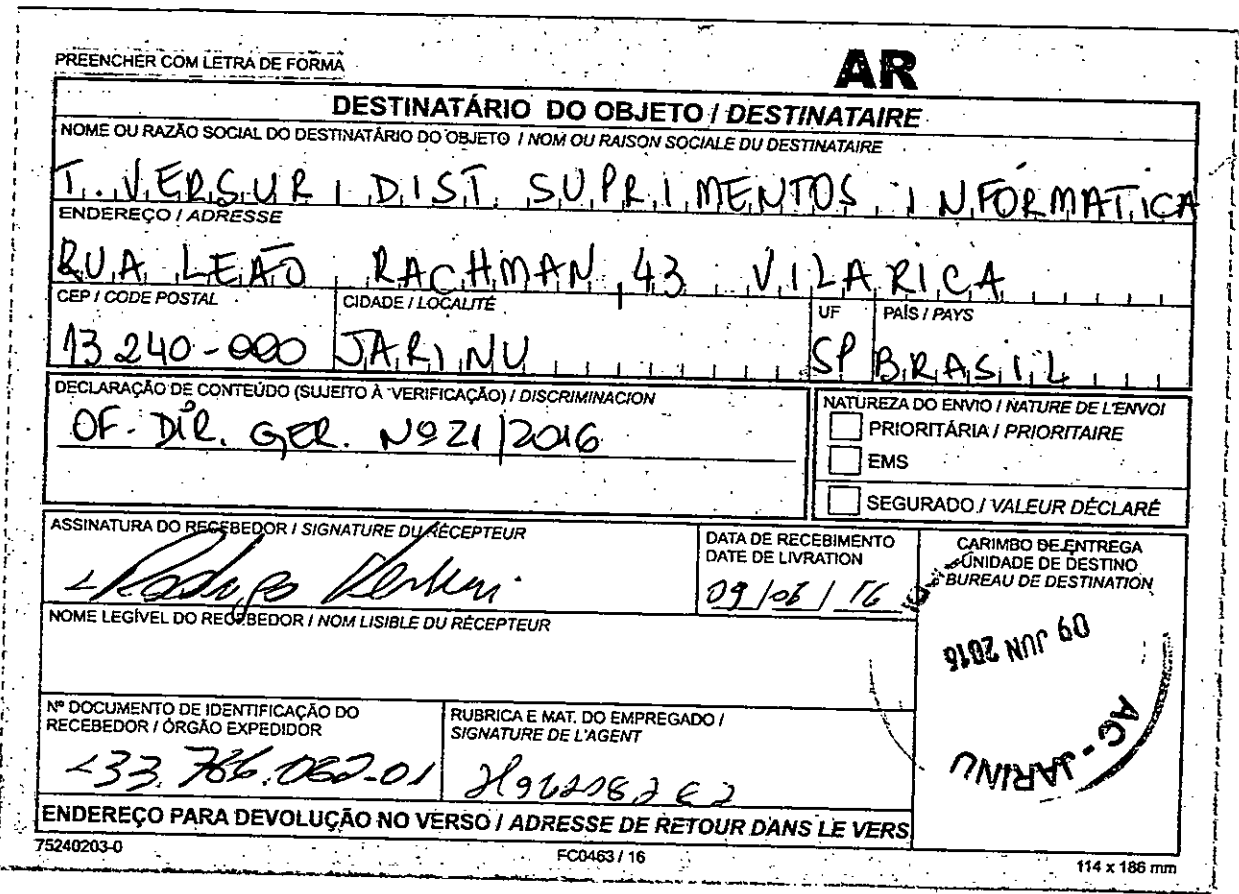 PREENCHER COM LETRA DE FORMA
AR
DESTINATÁRIO DO OBJETO / DESTINATAIRE
NOME OU RAZÃO SOCIAL DO DESTINATÁRIO DO OBJETO / NOM OU RAISON SOCIALE DU DESTINATAIRE
T. VERSURI DIST. SUPRIMENTOS INFORMATICA
ENDEREÇO / ADRESSE
RUA LEÃO RACHMAN, 43 VILA RICA
CEP / CODE POSTAL CIDADE / LOCALITÉ UF PAÍS / PAYS
13240-000 JARINU SP BRASIL
DECLARAÇÃO DE CONTEÚDO (SUJEITO À VERIFICAÇÃO) / DISCRIMINACION
OF. DIR. GER. Nº 21/2016
NATUREZA DO ENVIO / NATURE DE L'ENVOI
PRIORITÁRIA / PRIORITAIRE
EMS
SEGURADO / VALEUR DÉCLARÉ
ASSINATURA DO RECEBEDOR / SIGNATURE DU RÉCEPTEUR
Rodrigo
DATA DE RECEBIMENTO
DATE DE LIVRATION
09/06/16
CARIMBO DE ENTREGA
UNIDADE DE DESTINO
BUREAU DE DESTINATION
09 JUN 2016
AC-JARINU
NOME LEGÍVEL DO RECEBEDOR / NOM LISIBLE DU RÉCEPTEUR
Nº DOCUMENTO DE IDENTIFICAÇÃO DO
RECEBEDOR / ÓRGÃO EXPEDIDOR
RUBRICA E MAT. DO EMPREGADO /
SIGNATURE DE L'AGENT
ENDEREÇO PARA DEVOLUÇÃO NO VERSO / ADRESSE DE RETOUR DANS LE VERS
75240203-0 FC0463 / 16 114 x 186 mm